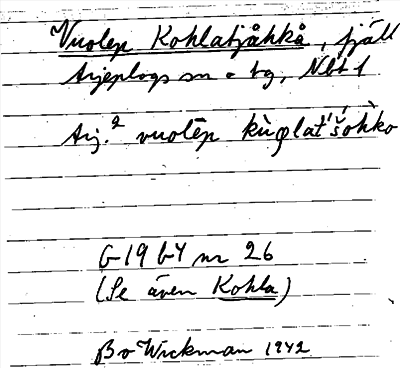 Vuolep Kohlatjåhkå, fjäll
Arjeplogs sn o tg, Nbt l
Arj.² vuolēp kùo̭lat's̆'ŏhko
G 19 b4 nr 26
(Se även Kohla)
Bo Wickman 1942